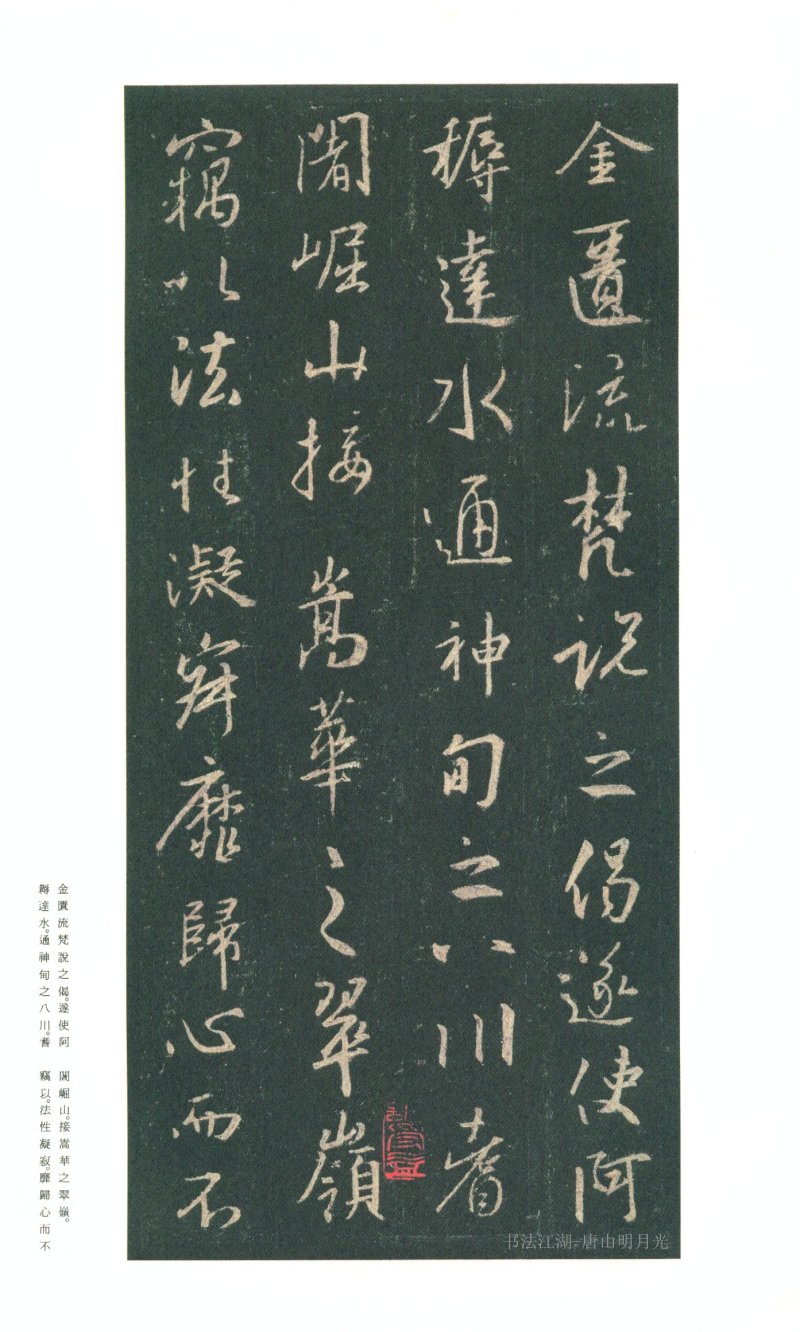 金匱流梵說之偈遂使阿
耨達水通神甸之八川耆
闍崛山接嵩華之翠嶺
竊以法性凝寂靡歸心而不
金匱流梵說之偈。遂使阿
耨達水。通神甸之八川。耆
闍崛山。接嵩華之翠嶺。
竊以。法性凝寂。靡歸心而不
书法江湖-唐山明月光